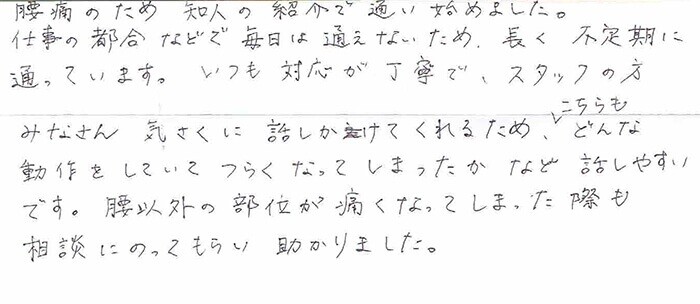 腰痛のため 知人の紹介で通い始めました。
仕事の都合などで毎日は通えないため、長く不定期に
通っています。いつも対応が丁寧で、スタッフの方
みなさん 気さくに話しかけてくれるため、こちらもどんな
動作をしていてつらくなってしまったかなど話しやすい
です。腰以外の部位が痛くなってしまった際も
相談にのってもらい助かりました。